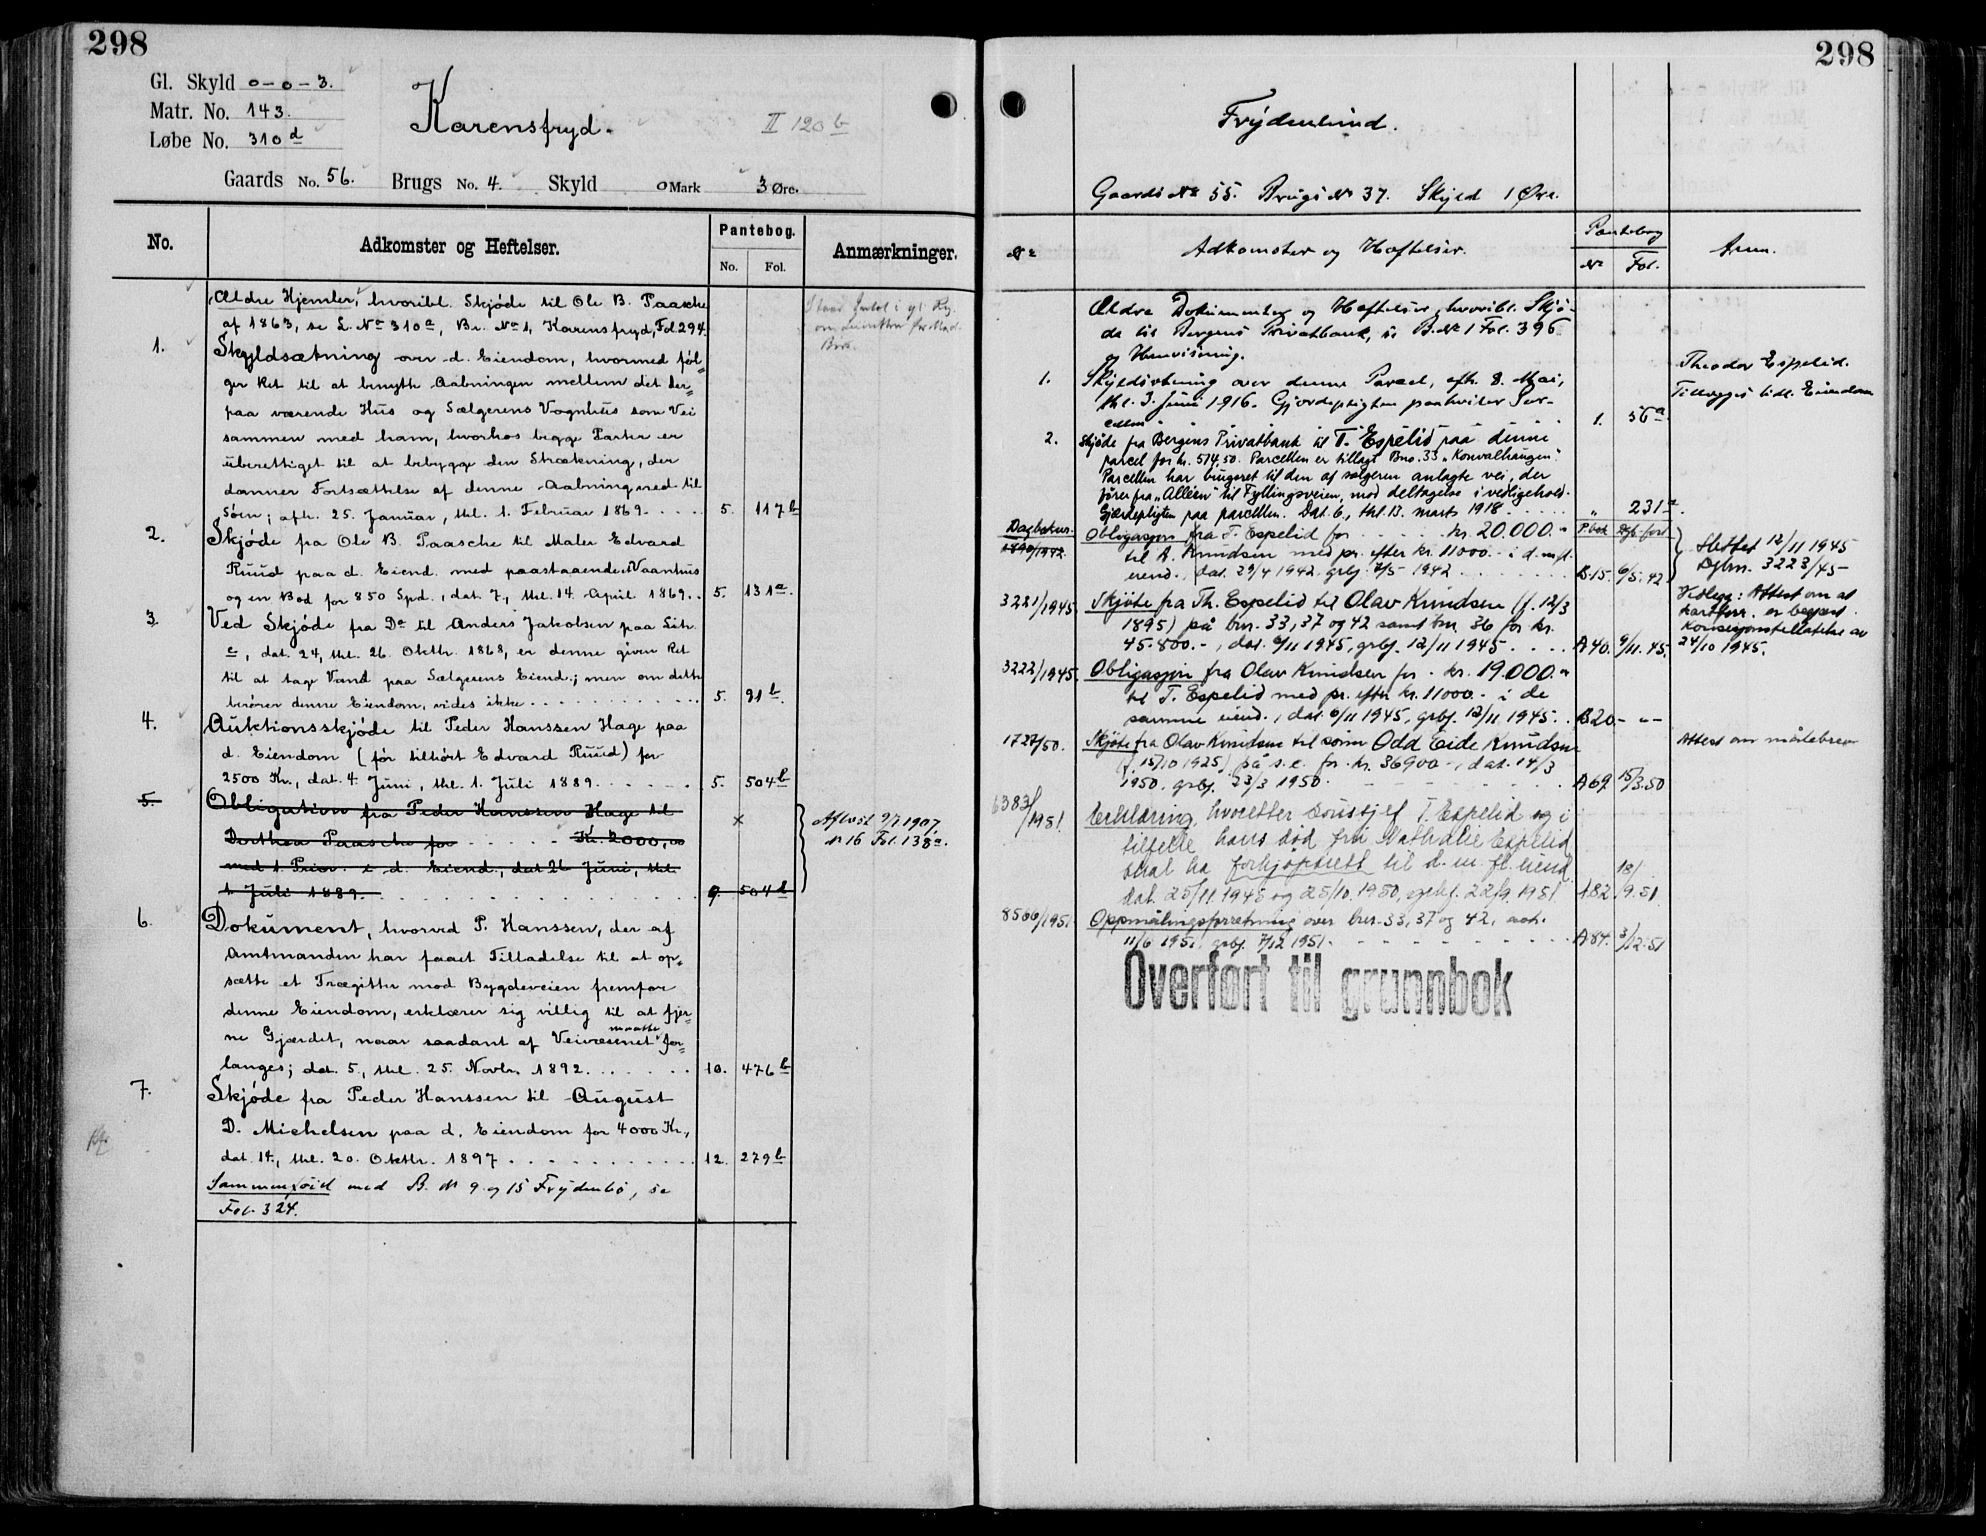 298
Gl. Skyld 0-0-3.
Matr. No. 143.
Løbe No. 310 d
Karensfryd.
II 120 b
Gaards No. 56. Brugs No. 4. Skyld 0 Mark 3 Øre.
No. Adkomster og Heftelser. Pantebog. No. Fol. Anmærkninger.
Ældre Hjemler, hvoribl. Skjøde til Ole B. Paasche
af 1863, se L. No 310 a, Br. No 1, Karensfryd, Fol 294.
1. Skyldsætning over d. Eiendom, hvormed føl=
ger Ret til at benytte Aabningen mellem det der=
paa værende Hus og Sælgerens Vognhus som Vei
sammen med ham, hvorhos begge Parter er
uberettiget til at bebygge den Strækning, der
danner Fortsættelse af denne Aabning ned til
Søen; afh. 25. Januar, thl. 1. Februar 1869 5. 117 b
2. Skjøde fra Ole B. Paasche til Maler Edvard
Ruud paa d. Eiend. med paastaaende Vaanhus
og en Bod for 850 Spd., dat. 7., thl. 14. April 1869. 5. 131 a.
3. Ved Skjøde fra Do til Anders Jakobsen paa Litr.
e, dat. 24, thl. 26. Oktbr. 1868, er denne given Ret
til at tage Vand paa Sælgerens Eiend.; men om dette
berører denne Eiendom, vides ikke 5. 91 b.
4. Auktionsskjøde til Peder Hanssen Hage paa
d. Eiendom (før tilhørt Edvard Ruud) for
2500 Kr., dat. 4. Juni, thl. 1. Juli 1889. 5. 504 b
5. Obligation fra Peder Hanssen Hage til
Dorthea Paasche for Kr. 2000,00
med 1. Prior. i d. Eiend., dat 26 Juni, thl.
1. Juli 1889. 9. 504 d
Aflæst 9/7 1907,
N 16 Fol. 138 a.
6. Dokument, hvorved P. Hanssen, der af
Amtmanden har faaet Tilladelse til at op=
sætte et Trægitter mod Bygdeveien fremfor
denne Eiendom, erklærer sig villig til at fjer=
ne Gjærdet, naar saadant af Veivæsenet maatte for=
langes; dat. 5, thl. 25. Novbr. 1892. 10. 476 b
7. Skjøde fra Peder Hanssen til August
D. Michelsen paa d. Eiendom for 4000 Kr.,
dat. 14., thl. 20. Oktbr. 1897 12. 279 b
Sammenføiet med B. N 9 og 15 Frydenbø, se
Fol. 324.
298
Frydenlund.
Gaards No 55. Brugs No 37. Skyld 1 Øre.
No Adkomster og Heftelser. Pantebog No Fol. Anm.
Ældre Dokumenter og Heftelser, hvoribl. Skjø-
de til Bergens Privatbank, se B. No 1 Fol. 396
og Henvisning.
1. Skyldsætning over denne Parcel, afh. 8. Mai,
thl. 3. Juni 1916. Gjerdepligten paahviler Par-
cellen 1. 56 a
Theodor Espelid.
Tillægges tidl. Eiendom
2. Skjøde fra Bergens Privatbank til T. Espelid paa denne
parcel for kr. 514,50. Parcellen er tillagt Bno. 33 "Konvalhaugen".
Parcellen har brugsret til den af sælgeren anlagte vei, der
fører fra "Alléen" til Fyllingsveien, mod deltagelse i vedligehold.
Gjærdepligten paa parcellen. Dat. 6., thl. 13. marts 1918 " 231 a.
Dagboknr. P.bok Dgb. ført
1890/1942. Obligasjon fra T. Espelid for kr. 20.000.-
til A. Knudsen med pr. efter kr. 11000.- i d. m. fl.
eiend., dat. 29/4 1942, grbf. 7/5 1942 B.15. 6/5.42
Slettet 12/11 1945
Dgbnr. 3223/45
3221/1945 Skjøte fra Th. Espelid til Olav Knudsen (f. 12/3
1895) på bnr. 33, 37 og 42 samt bnr. 36 for kr.
45.800.-, dat. 6/11 1945, grbf. 12/11 1945 A40. 9/11.45.
Vedlegg: Attest om at
kartforr. er begjært.
Konsesjonstillatelse av
24/10 1945.
3222/1945. Obligasjon fra Olav Knudsen for kr. 19.000.-
til T. Espelid med pr. efter kr. 11000.- i de
samme eiend., dat. 6/11 1945, grbf. 12/11 1945. B20 - " -
1727/50. Skjøte fra Olav Knudsen til sønn Odd Eide Knudsen
(f. 15/10 1925) på s.e. for kr. 36900.-, dat. 14/3
1950, grbf. 23/3 1950 A69 15/3.50
Attest om målebrev
6383/1951. Erklæring, hvoretter Doustjef T. Espelid og i
tilfelle hans død fru Nathalie Espelid
skal ha forkjøpsrett til d. m. fl. eiend.
dat. 25/11 1945 og 25/10 1950, grbf. 22/9 1951 A82 18/9.51
8500/1951 Oppmålingsforretning over bnr. 33, 37 og 42, avh.
11/6 1951, grbf. 7/12 1951. A84. 3/12.51
Overført til grunnbok